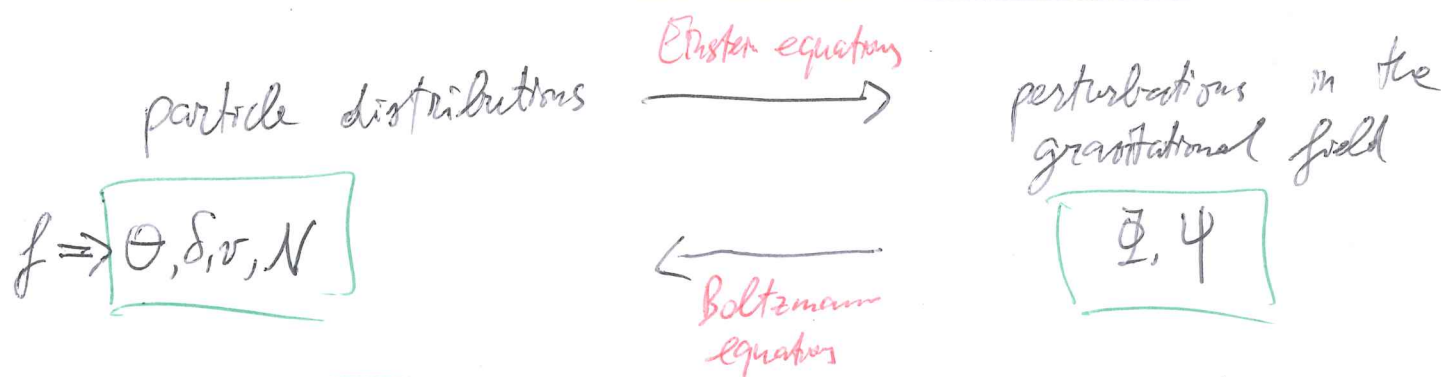 Einstein equations
particle distributions
perturbations in the
gravitational field
f ⇒ Θ, δ, v, N
Φ, Ψ
Boltzmann
equations